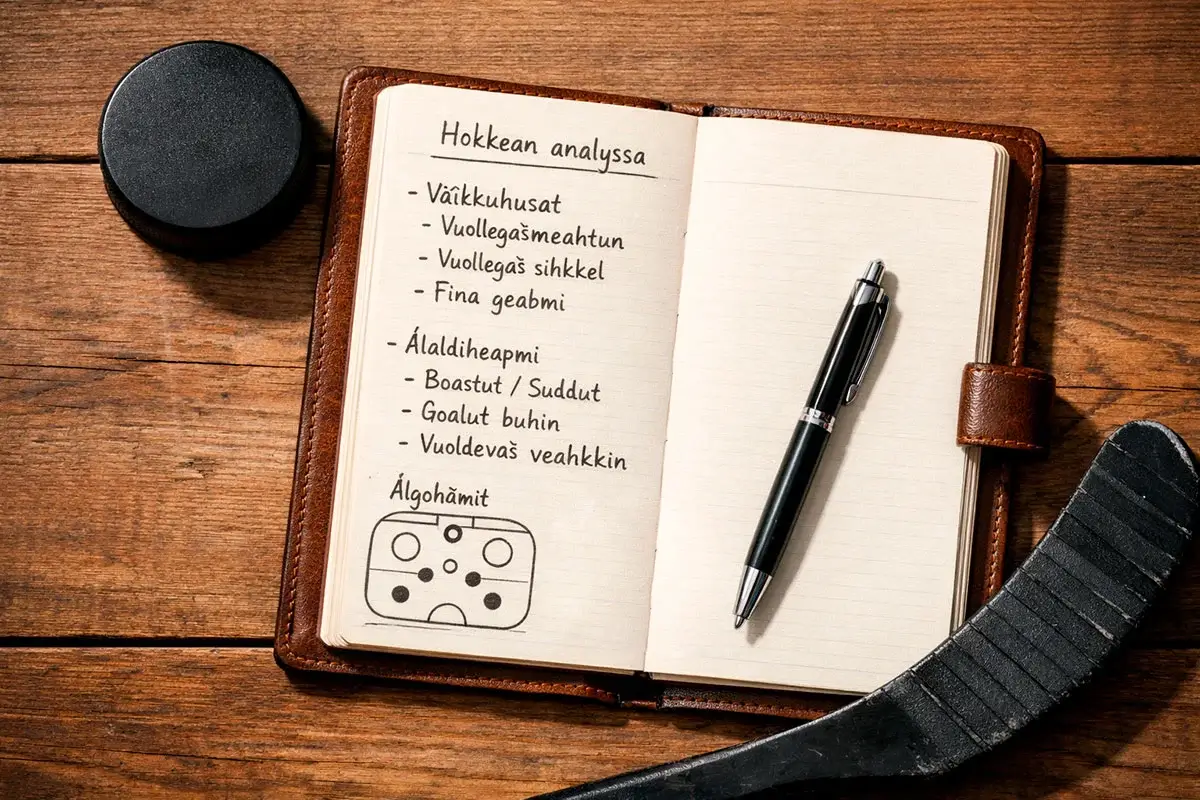 Hokkean analyssa
- Väîkkuhusat
- Vuollegašmeahtun
- Vuollegaš sihkkel
- Fina geabmi
- Álaldiheapmi
- Boastut / Suddut
- Goalut buhin
- Vuoldevaš veahkkin
Álgohămit